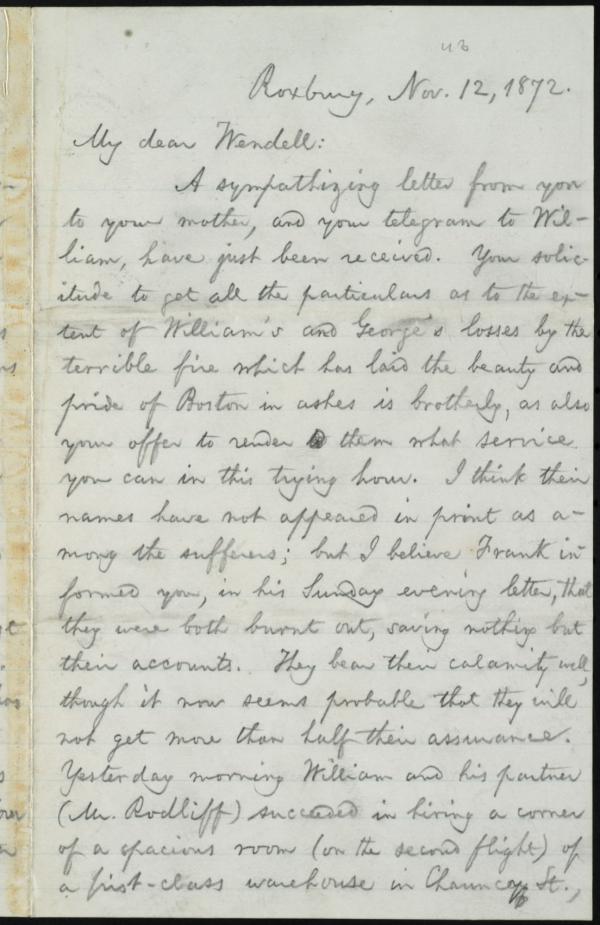 Roxbury, Nov. 12, 1872.
My dear Wendell:
A sympathizing letter from you
to your mother, and your telegram to Wil-
liam, have just been received. Your solic-
itude to get all the particulars as to the ex-
tent of William's and George's losses by the
terrible fire which has laid the beauty and
pride of Boston in ashes is brotherly, as also
your offer to render them what service
you can in this trying hour. I think their
names have not appeared in print as a-
mong the sufferers; but I believe Frank in-
formed you, in his Sunday evening letter, that
they were both burnt out, saving nothing but
their accounts. They bear their calamity well,
though it now seems probable that they will
not get more than half their assurance.
Yesterday morning William and his partner
(Mr. Rodliff) succeeded in hiring a corner
of a spacious room (on the second flight) of
a first-class warehouse in Chauncy St.,